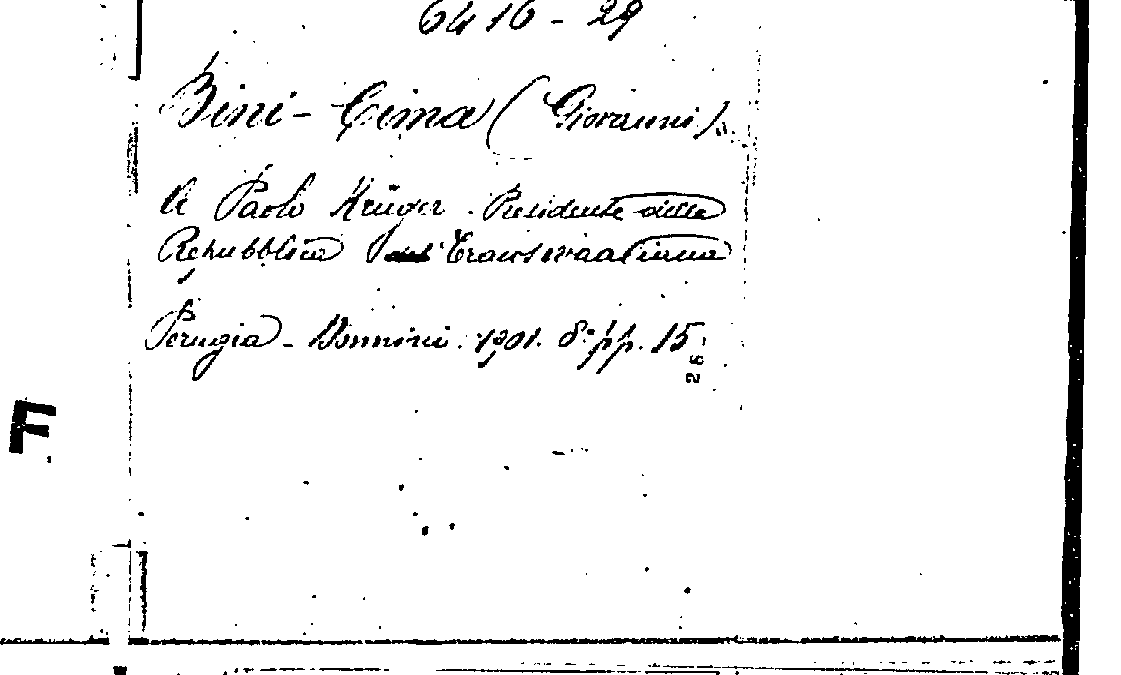 6416 - 29
Bini - Cima (Giovanni)
A Paolo Krüger. Presidente della
Repubblica del Transwaaliana
Perugia - Donnini. 1901. 8° pp. 15
26
F